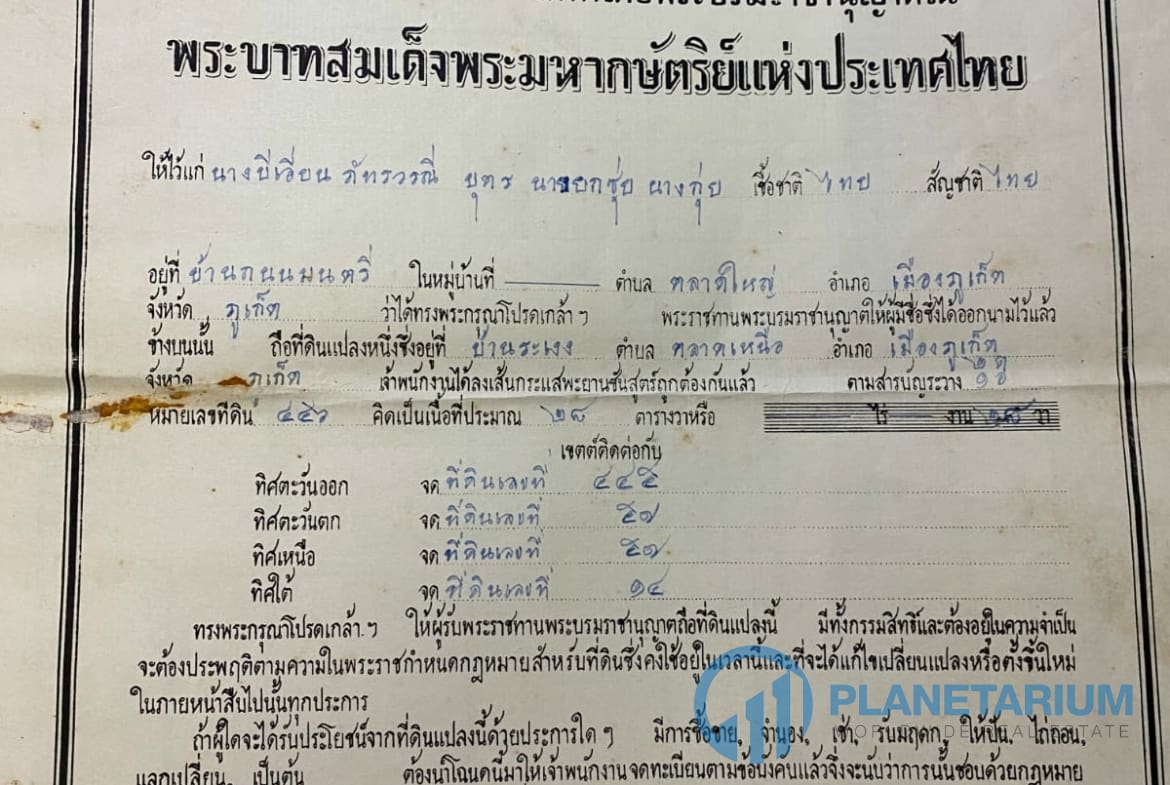 พระบาทสมเด็จพระมหากษัตริย์แห่งประเทศไทย
ให้ไว้แก่ นางบีเวียน ภัทรวรณี บุตร นายยกซุ่ย นางกุ่ย เชื้อชาติ ไทย สัญชาติ ไทย
อยู่ที่ บ้านถนนมนตรี ในหมู่บ้านที่ ตำบล ตลาดใหญ่ อำเภอ เมืองภูเก็ต
จังหวัด ภูเก็ต ว่าได้ทรงพระกรุณาโปรดเกล้า ฯ พระราชทานพระบรมราชานุญาตให้ผู้มีชื่อซึ่งได้ออกนามไว้แล้ว
ข้างบนนั้น ถือที่ดินแปลงหนึ่งซึ่งอยู่ที่ บ้านระเงง ตำบล ตลาดเหนือ อำเภอ เมืองภูเก็ต
จังหวัด ภูเก็ต เจ้าพนักงานได้ลงเส้นกระแสพะยานชันสูตร์ถูกต้องกันแล้ว ตามสารบัญระวาง
หมายเลขที่ดิน ๔๕๖ คิดเป็นเนื้อที่ประมาณ ๒๘ ตารางวาหรือ ไร่ งาน วา
เขตต์ติดต่อกับ
ทิศตะวันออก จด ที่ดินเลขที่ ๔๔๕
ทิศตะวันตก จด ที่ดินเลขที่ ๕๗
ทิศเหนือ จด ที่ดินเลขที่ ๕๗
ทิศใต้ จด ที่ดินเลขที่ ๑๔
ทรงพระกรุณาโปรดเกล้า ฯ ให้ผู้รับพระราชทานพระบรมราชานุญาตถือที่ดินแปลงนี้ มีทั้งกรรมสิทธิ์และต้องอยู่ในความจำเป็น
จะต้องประพฤติตามความในพระราชกำหนดกฎหมายสำหรับที่ดินซึ่งคงใช้อยู่ในเวลานี้และที่จะได้แก้ไขเปลี่ยนแปลงหรือตั้งขึ้นใหม่
ในภายหน้าสืบไปนั้นทุกประการ
ถ้าผู้ใดจะได้รับประโยชน์จากที่ดินแปลงนี้ด้วยประการใด ๆ มีการซื้อขาย, จำนอง, เช่า, รับมฤดก, ให้ปัน, ไถ่ถอน,
แลกเปลี่ยน, เป็นต้น ต้องนำโฉนดนี้มาให้เจ้าพนักงานจดทะเบียนตามข้อบังคับแล้วจึ่งจะนับว่าการนั้นชอบด้วยกฎหมาย
PLANETARIUM